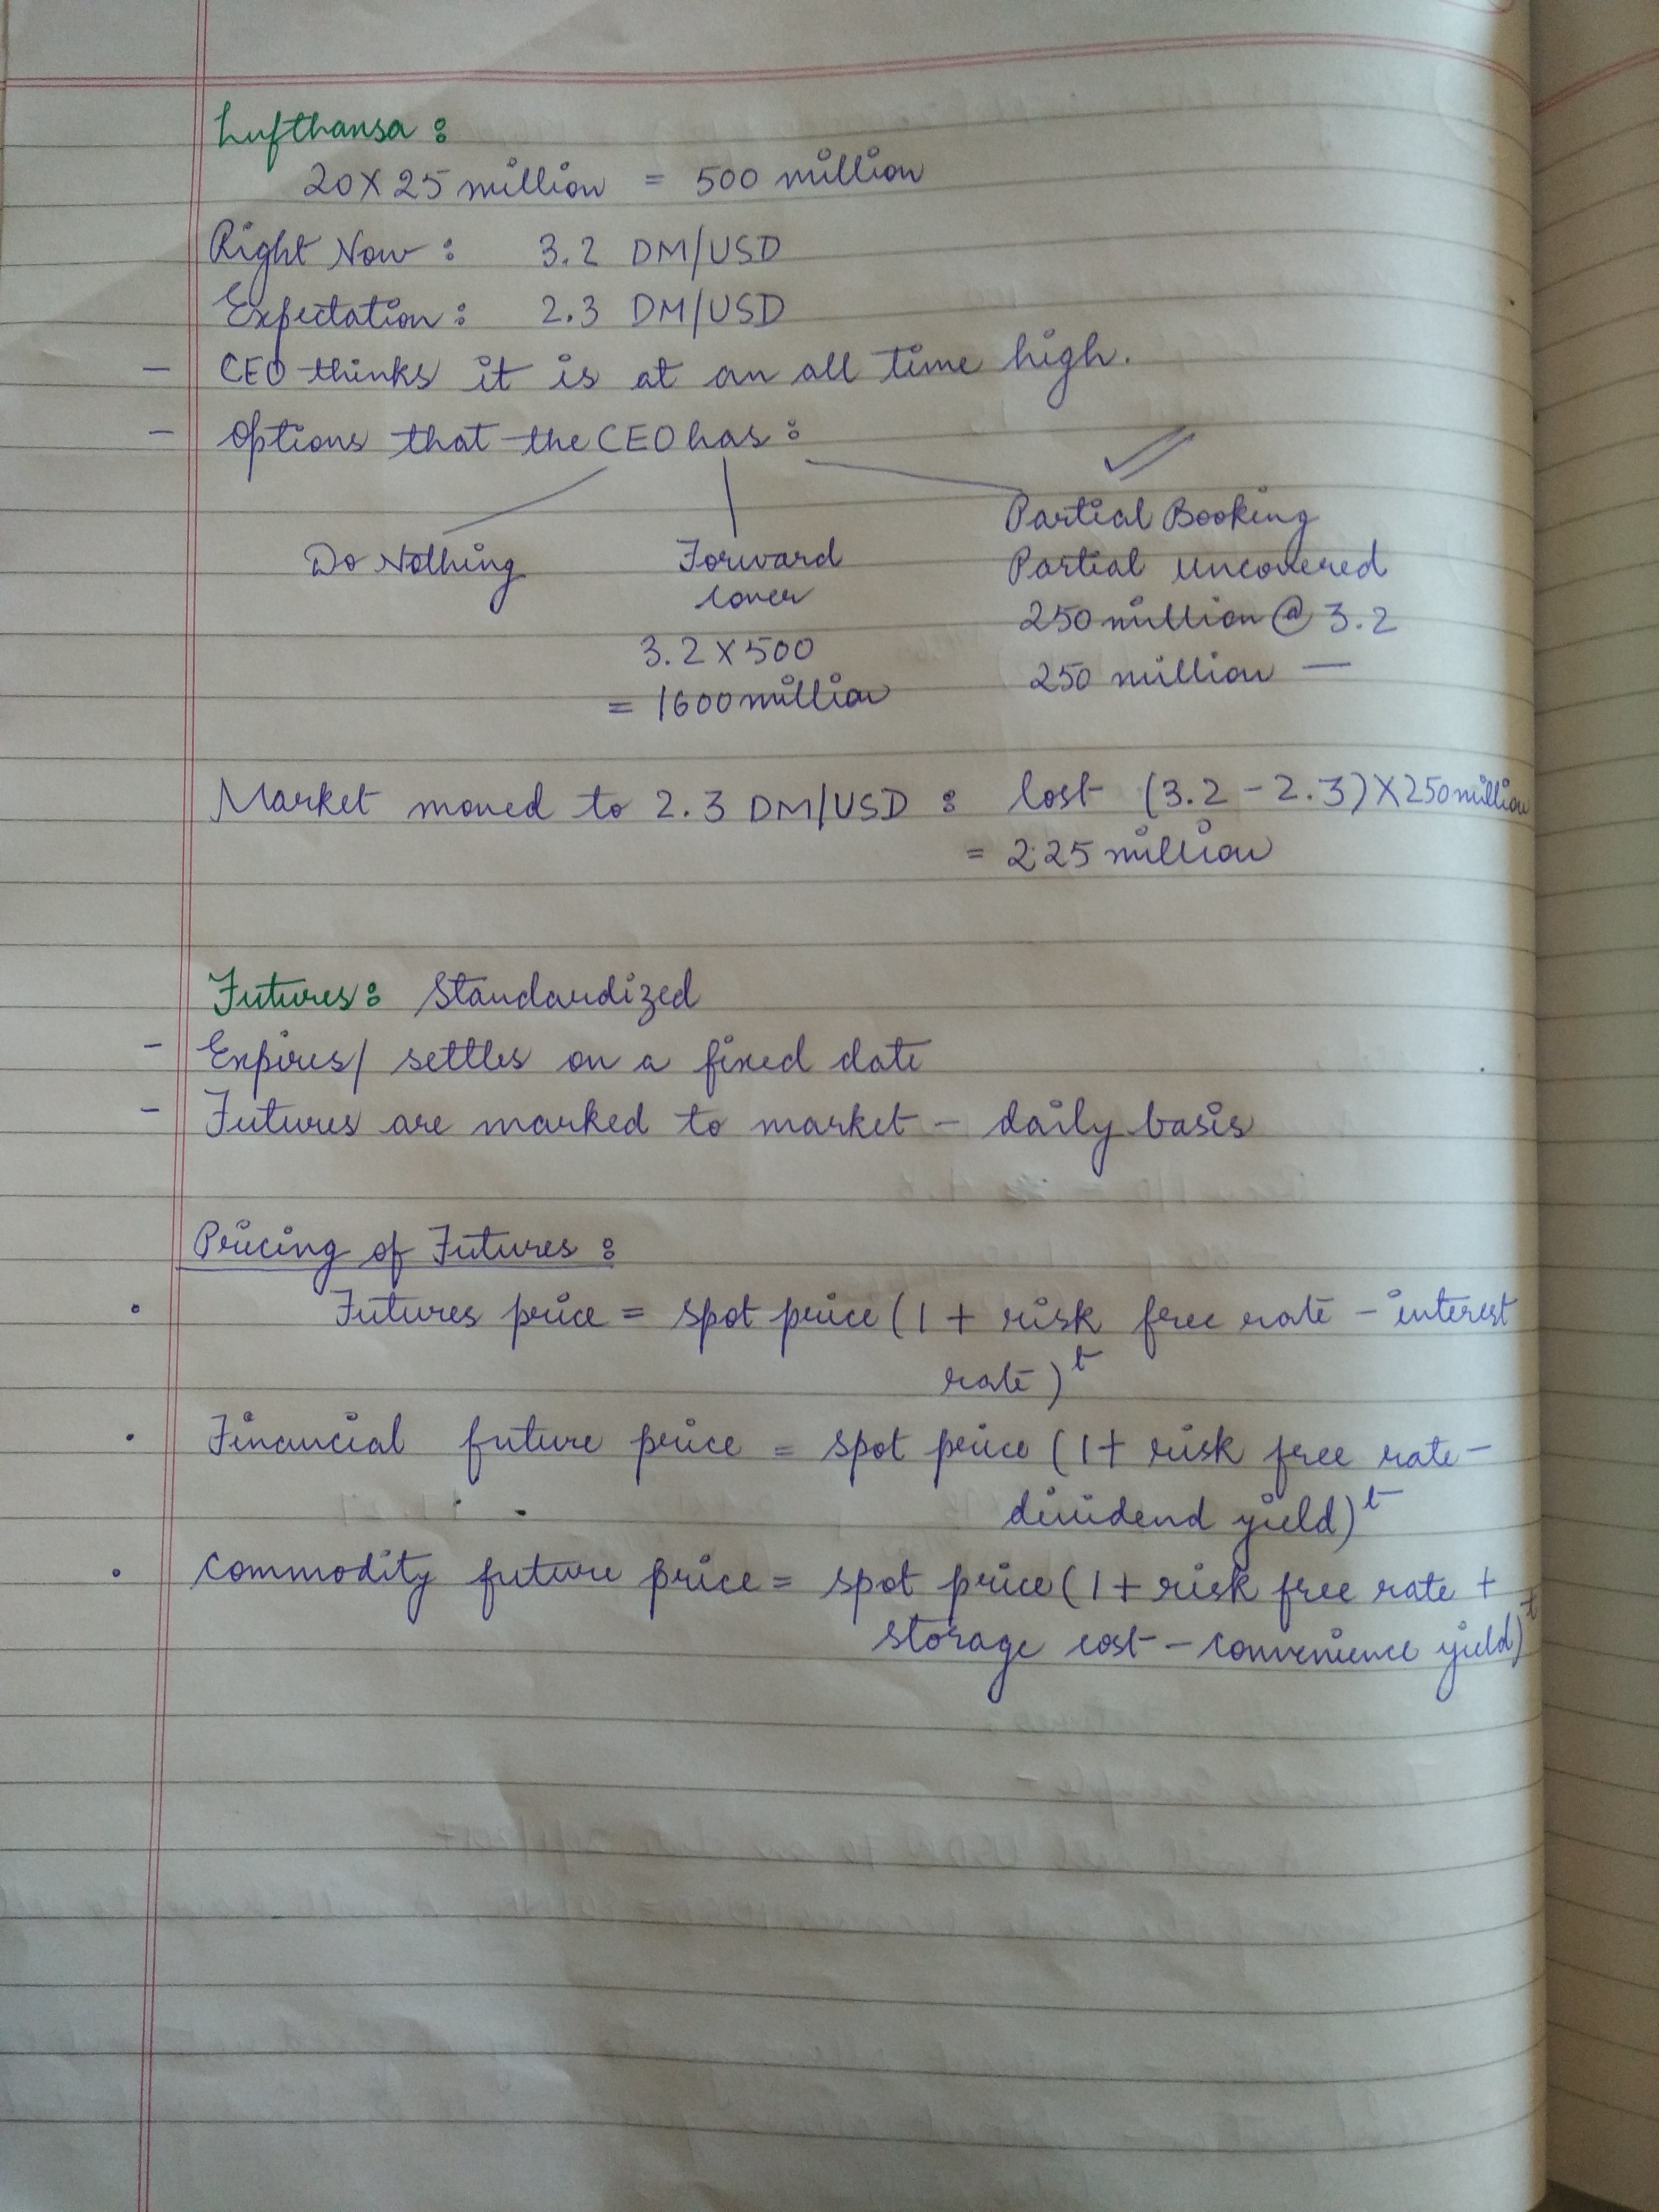 Lufthansa :
20 X 25 million = 500 million
Right Now : 3.2 DM/USD
Expectation : 2.3 DM/USD
- CEO thinks it is at an all time high.
- Options that the CEO has :
Do Nothing
Forward
cover
3.2 X 500
= 1600 million
Partial Booking
Partial uncovered
250 million @ 3.2
250 million —
Market moved to 2.3 DM/USD : lost (3.2 - 2.3) X 250 million
= 225 million
Futures : Standardized
- Expires/ settles on a fixed date
- Futures are marked to market - daily basis
Pricing of Futures :
• Futures price = spot price (1 + risk free rate - interest
rate)^t
• Financial future price = spot price (1 + risk free rate -
dividend yield)^t
• Commodity future price = spot price (1 + risk free rate +
storage cost - convenience yield)^t